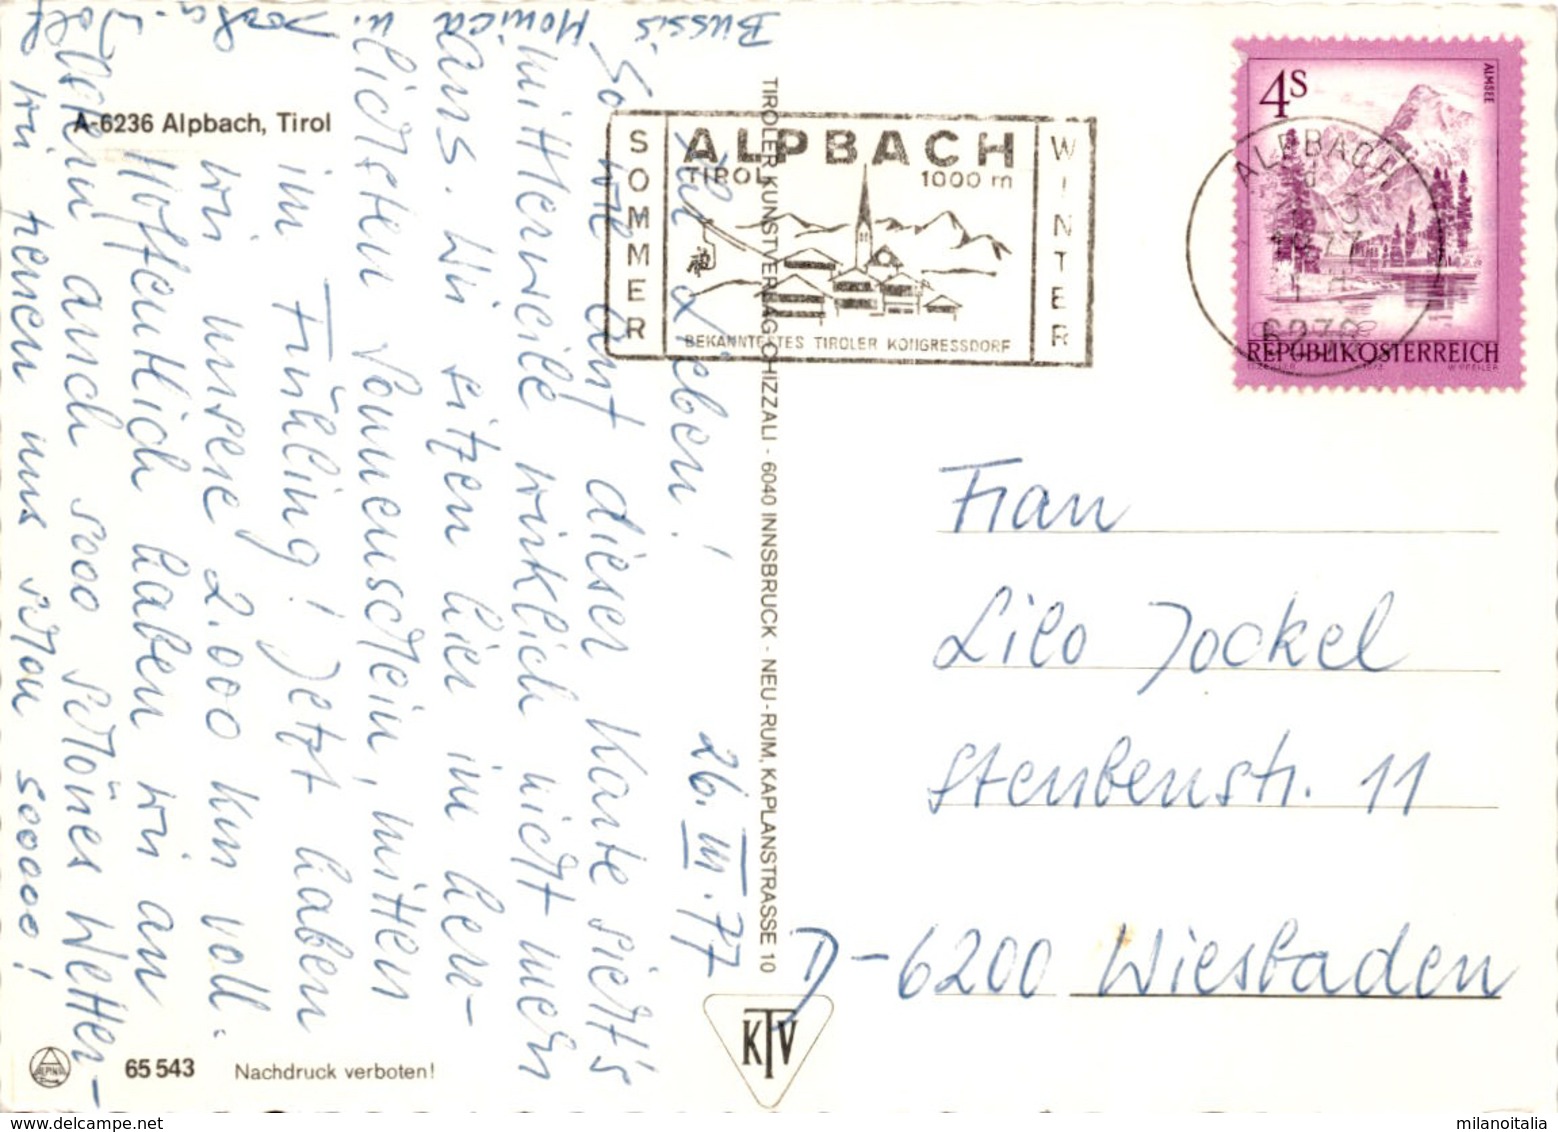 A-6236 Alpbach, Tirol
26. III. 77
Ihr Lieben!
So wie auf dieser Karte sieht's
mittlerweile wirklich nicht mehr
aus. Wir sitzen hier im herr-
lichsten Sonnenschein, mitten
im Frühling! Jetzt haben
wir unsere 2.000 km voll.
Hoffentlich haben wir an
Ostern auch sooo schönes Wetter-
wir freuen uns schon soooo!
Bussis
Monica
u.
TIROLER KUNSTVERLAG CHIZZALI - 6040 INNSBRUCK - NEU-RUM, KAPLANSTRASSE 10
SOMMER
ALPBACH
TIROL 1000 m
BEKANNTESTES TIROLER KONGRESSDORF
WINTER
4S
ALMSEE
REPUBLIK ÖSTERREICH
ALPBACH
1977
Frau
Lilo Jockel
Steubenstr. 11
D-6200 Wiesbaden
KTV
ALPINA
65 543
Nachdruck verboten!
delcampe.net
milanoitalia